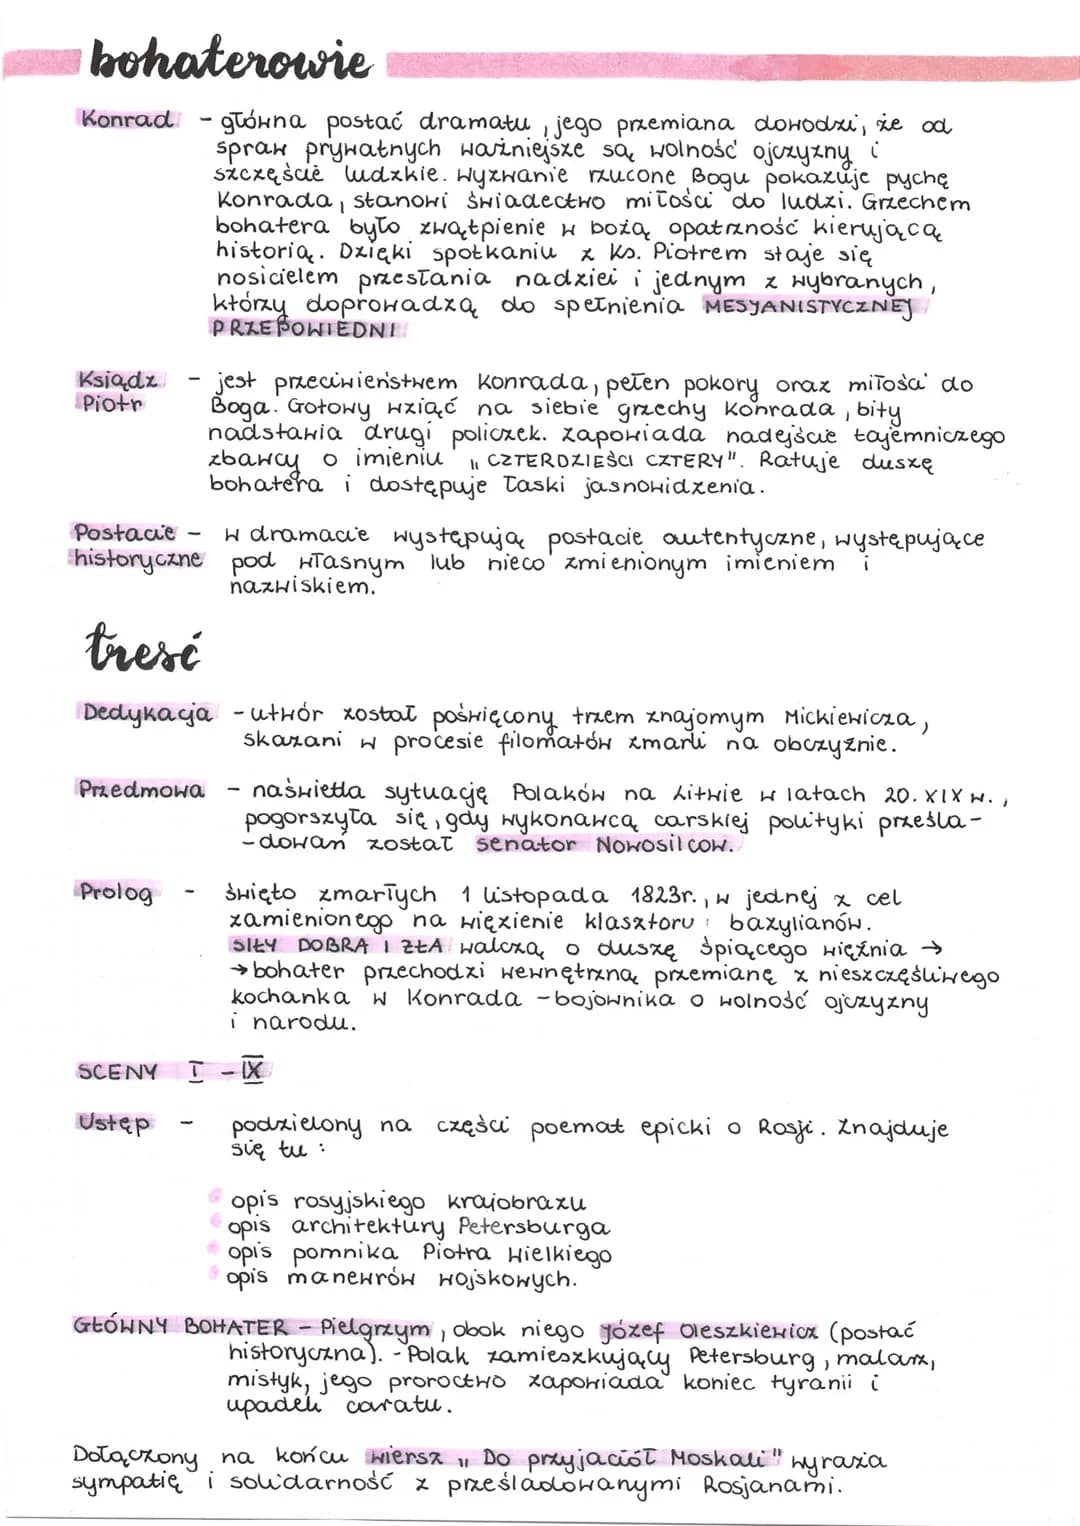 bohaterowie
Konrad - główna postać dramatu, jego przemiana dowodzi, że od
spraw prywatnych ważniejsze są wolność ojczyzny i
szczęście ludzkie. Wyzwanie rzucone Bogu pokazuje pychę
Konrada, stanowi świadectwo miłości do ludzi. Grzechem
bohatera było zwątpienie w bożą opatrzność kierującą
historią. Dzięki spotkaniu z Ks. Piotrem staje się
nosicielem przesłania nadziei i jednym z wybranych,
którzy doprowadzą do spełnienia MESJANISTYCZNEJ
PRZEPOWIEDNI
Ksiądz - jest przeciwieństwem Konrada, pełen pokory oraz miłości do
Piotr Boga. Gotowy wziąć na siebie grzechy Konrada, bity
nadstawia drugi policzek. Zapowiada nadejście tajemniczego
zbawcy o imieniu „CZTERDZIEŚCI CZTERY". Ratuje duszę
bohatera i dostępuje łaski jasnowidzenia.
Postacie - w dramacie występują postacie autentyczne, występujące
historyczne pod własnym lub nieco zmienionym imieniem i
nazwiskiem.
treść
Dedykacja - utwór został poświęcony trzem znajomym Mickiewicza,
skazani w procesie filomatów zmarli na obczyźnie.
Przedmowa - naświetla sytuację Polaków na Litwie w latach 20. XIX w.,
pogorszyła się, gdy wykonawcą carskiej polityki prześla-
-dowań został senator Nowosilcow.
Prolog - święto zmarłych 1 listopada 1823r., w jednej z cel
zamienionego na więzienie klasztoru bazylianów.
SIŁY DOBRA I ZŁA walczą o duszę śpiącego więźnia →
→ bohater przechodzi wewnętrzną przemianę z nieszczęśliwego
kochanka w Konrada - bojownika o wolność ojczyzny
i narodu.
SCENY I - IX
Ustęp - podzielony na części poemat epicki o Rosji. Znajduje
się tu :
opis rosyjskiego krajobrazu
opis architektury Petersburga
opis pomnika Piotra Wielkiego
opis manewrów wojskowych.
GŁÓWNY BOHATER - Pielgrzym, obok niego Józef Oleszkiewicz (postać
historyczna). - Polak zamieszkujący Petersburg, malarz,
mistyk, jego proroctwo zapowiada koniec tyranii i
upadek caratu.
Dołączony na końcu wiersz „Do przyjaciół Moskali" wyraża
sympatię i solidarność z prześladowanymi Rosjanami.